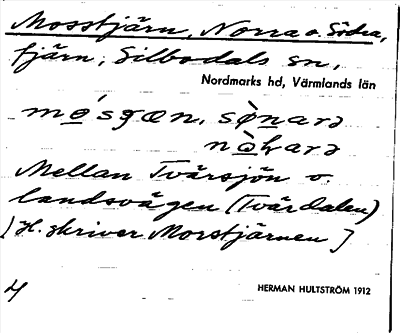 Mosstjärn, Norra o. Södra,
tjärn, Silbodals sn,
Nordmarks hd, Värmlands län
Mellan Tvärsjön o.
landsvägen (Tvärdalen)
[H. skriver Morstjärnen]
HERMAN HULTSTRÖM 1912